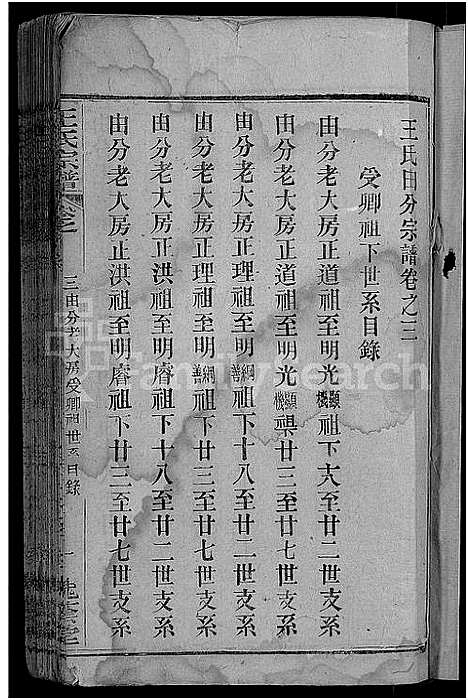 王氏由分宗譜卷之三
受卿祖下世系目錄
由分老大房正道祖至明光顯機祖下六至廿二世支系
由分老大房正道祖至明光顯機祖廿三至廿七世支系
由分老大房正理祖至明綱善祖下十八至廿二世支系
由分老大房正理祖至明綱善祖下廿三至廿七世支系
由分老大房正洪祖至明睿祖下十八至廿二世支系
由分老大房止洪祖至明睿祖下廿三至廿七世支系
王氏宗譜 卷之
三由分老大房受卿祖世系目錄
一
FamilySearch